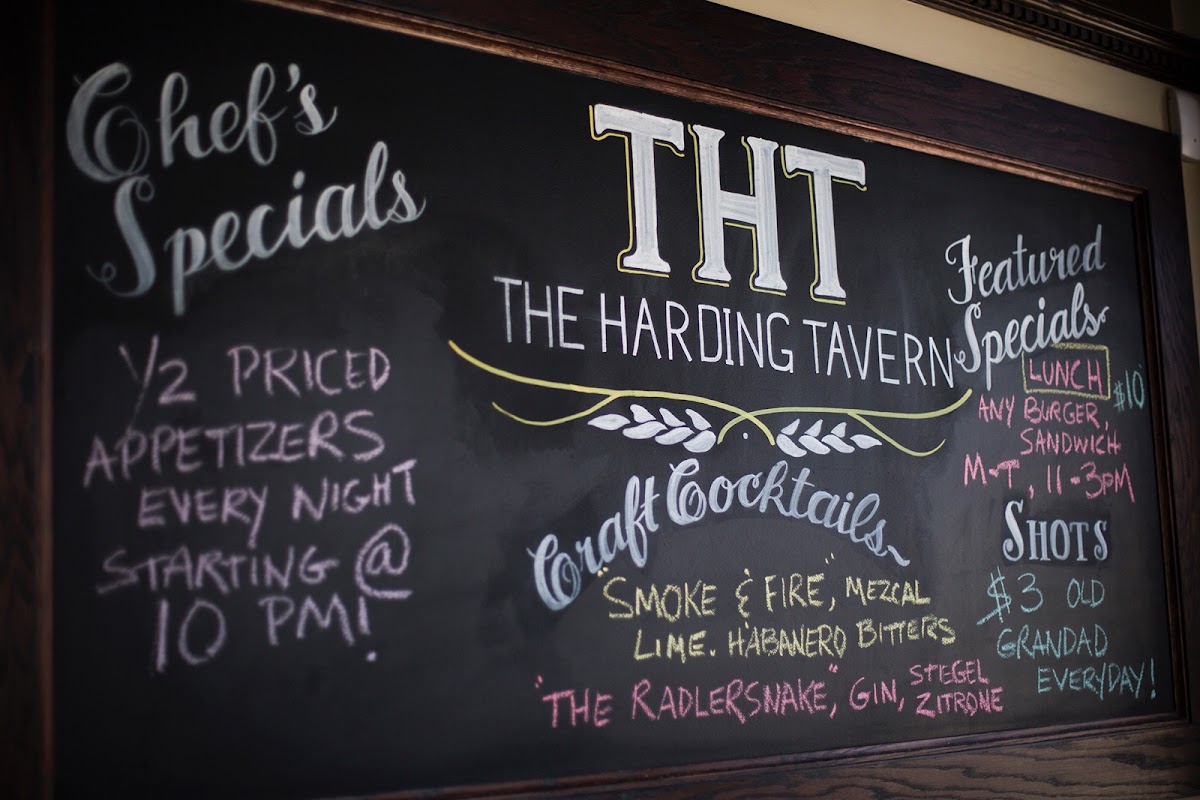 Chef's
Specials
1/2 PRICED
APPETIZERS
EVERY NIGHT
STARTING @
10 PM!
THT
THE HARDING TAVERN
Craft Cocktails
"SMOKE & FIRE", MEZCAL
LIME. HABANERO BITTERS
"THE RADLERSNAKE", GIN, STIEGEL
ZITRONE
Featured
Specials
LUNCH
$10
ANY BURGER,
SANDWICH
M-T, 11-3PM
SHOTS
$3 OLD
GRANDAD
EVERYDAY!